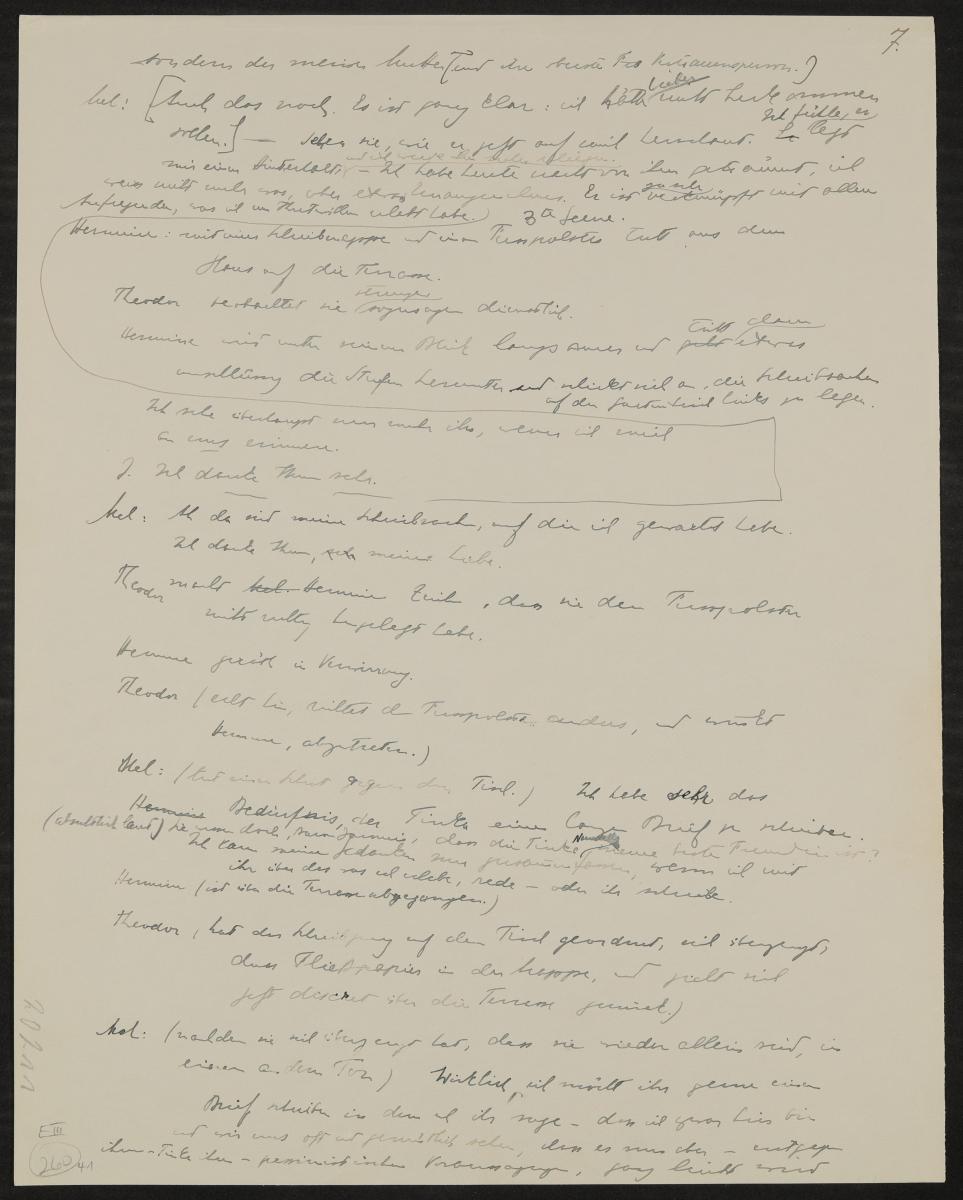 7.
sondern der meiner Mutter (und Ihre beste Frau Vertrauensperson.)
Mel: [Auch das noch. Es ist ganz klar: ich hätte nicht herkommen
sollen.] — Sehen Sie, wie er jetzt auf mich herschaut. Ich fühle, er legt
mir einen Hinterhalt. – Ich habe heute nacht von ihm geträumt, ich
weiss nicht mehr was, aber etwas Unangenehmes. Es ist verknüpft mit allem
Aufregenden, was ich erlebt habe.) 3te Scene.
Hermine: mit einer Schreibmappe und einem Fusspolster tritt aus dem
Haus auf die Terrasse.
Theodor beobachtet sie strenge sozusagen dienstlich.
Hermine wird unter seinem Blick langsamer und tritt dann etwas
unschlüssig die Stufen herunter und schickt sich an, die Schreibsachen
auf den Gartentisch links zu legen.
Ich sehe überhaupt nur mehr ihn, wenn ich mich
an uns erinnere.
J. Ich danke Ihnen sehr.
Mel: Ah da sind meine Schreibsachen, auf die ich gewartet habe.
Ich danke Ihnen, sehr meine Liebe.
Theodor macht Mel. Hermine Zeichen, dass sie den Fusspolster
nicht richtig hingelegt habe.
Hermine gerät in Verwirrung.
Theodor (eilt hin, richtet den Fusspolster anders, und winkt
Hermine, abzutreten.)
Mel: (tut einen Schritt gegen den Tisch.) Ich habe sehr das
Hermine Bedürfnis, der Tinka einen langen Brief zu schreiben.
(absichtlich laut) Sie wissen doch, dass die Tinka Neuhaus meine beste Freundin ist?
Ich kann meine Gedanken nur zusammenfassen, wenn ich mit
ihr über das was ich erlebe, rede – oder ihr schreibe.
Hermine (ist über die Terrasse abgegangen.)
Theodor, hat das Schreibzeug auf dem Tisch geordnet, sich überzeugt,
dass Fliesspapier in der Mappe, und zieht sich
jetzt discret über die Terrasse zurück.)
Mel: (nachdem sie sich überzeugt hat, dass sie wieder allein sind, in
einem andern Ton) Wirklich, ich möchte ihr gerne einen
Brief schreiben in dem ich ihr sage – dass ich zwar hier bin
und wir uns oft und gemütlich sehen, dass es nun aber – entgegen
ihren – Tinka ihren – pessimistischen Voraussagungen, ganz leicht wird
E III
260
41